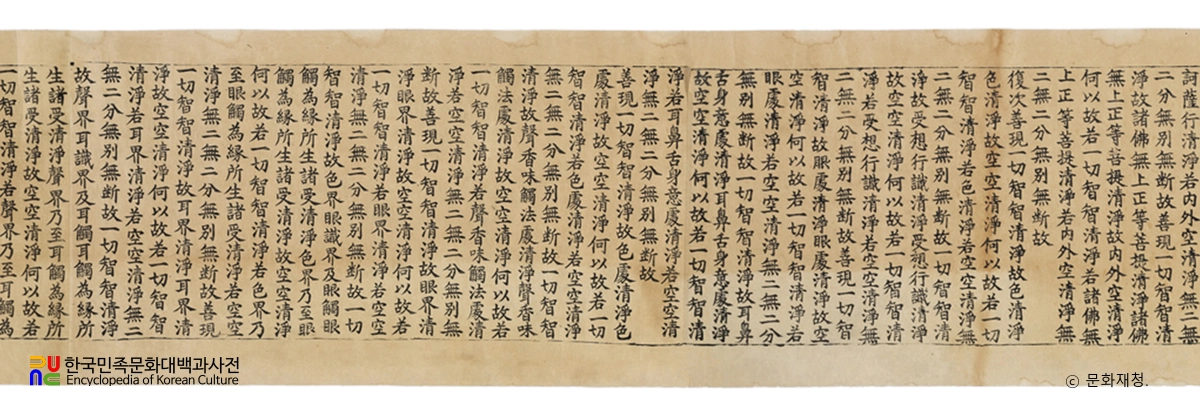 訶薩行清淨若內外空清淨無二無
二分無別無斷故善現一切智智清
淨故諸佛無上正等菩提清淨諸佛
無上正等菩提清淨故內外空清淨
何以故若一切智智清淨若諸佛無
上正等菩提清淨若內外空清淨無
二無二分無別無斷故
復次善現一切智智清淨故色清淨
色清淨故空空清淨何以故若一切
智智清淨若色清淨若空空清淨無
二無二分無別無斷故一切智智清
淨故受想行識清淨受想行識清淨
故空空清淨何以故若一切智智清
淨若受想行識清淨若空空清淨無
二無二分無別無斷故善現一切智
智清淨故眼處清淨眼處清淨故空
空清淨何以故若一切智智清淨若
眼處清淨若空空清淨無二無二分
無別無斷故一切智智清淨故耳鼻
舌身意處清淨耳鼻舌身意處清淨
故空空清淨何以故若一切智智清
淨若耳鼻舌身意處清淨若空空清
淨無二無二分無別無斷故
善現一切智智清淨故色處清淨色
處清淨故空空清淨何以故若一切
智智清淨若色處清淨若空空清淨
無二無二分無別無斷故一切智智
清淨故聲香味觸法處清淨聲香味
觸法處清淨故空空清淨何以故若
一切智智清淨若聲香味觸法處清
淨若空空清淨無二無二分無別無
斷故善現一切智智清淨故眼界清
淨眼界清淨故空空清淨何以故若
一切智智清淨若眼界清淨若空空
清淨無二無二分無別無斷故一切
智智清淨故色界眼識界及眼觸眼
觸為緣所生諸受清淨色界乃至眼
觸為緣所生諸受清淨故空空清淨
何以故若一切智智清淨若色界乃
至眼觸為緣所生諸受清淨若空空
清淨無二無二分無別無斷故善現
一切智智清淨故耳界清淨耳界清
淨故空空清淨何以故若一切智智
清淨若耳界清淨若空空清淨無二
無二分無別無斷故一切智智清淨
故聲界耳識界及耳觸耳觸為緣所
生諸受清淨聲界乃至耳觸為緣所
生諸受清淨故空空清淨何以故若
一切智智清淨若聲界乃至耳觸為
한국민족문화대백과사전
Encyclopedia of Korean Culture
ⓒ 문화재청.